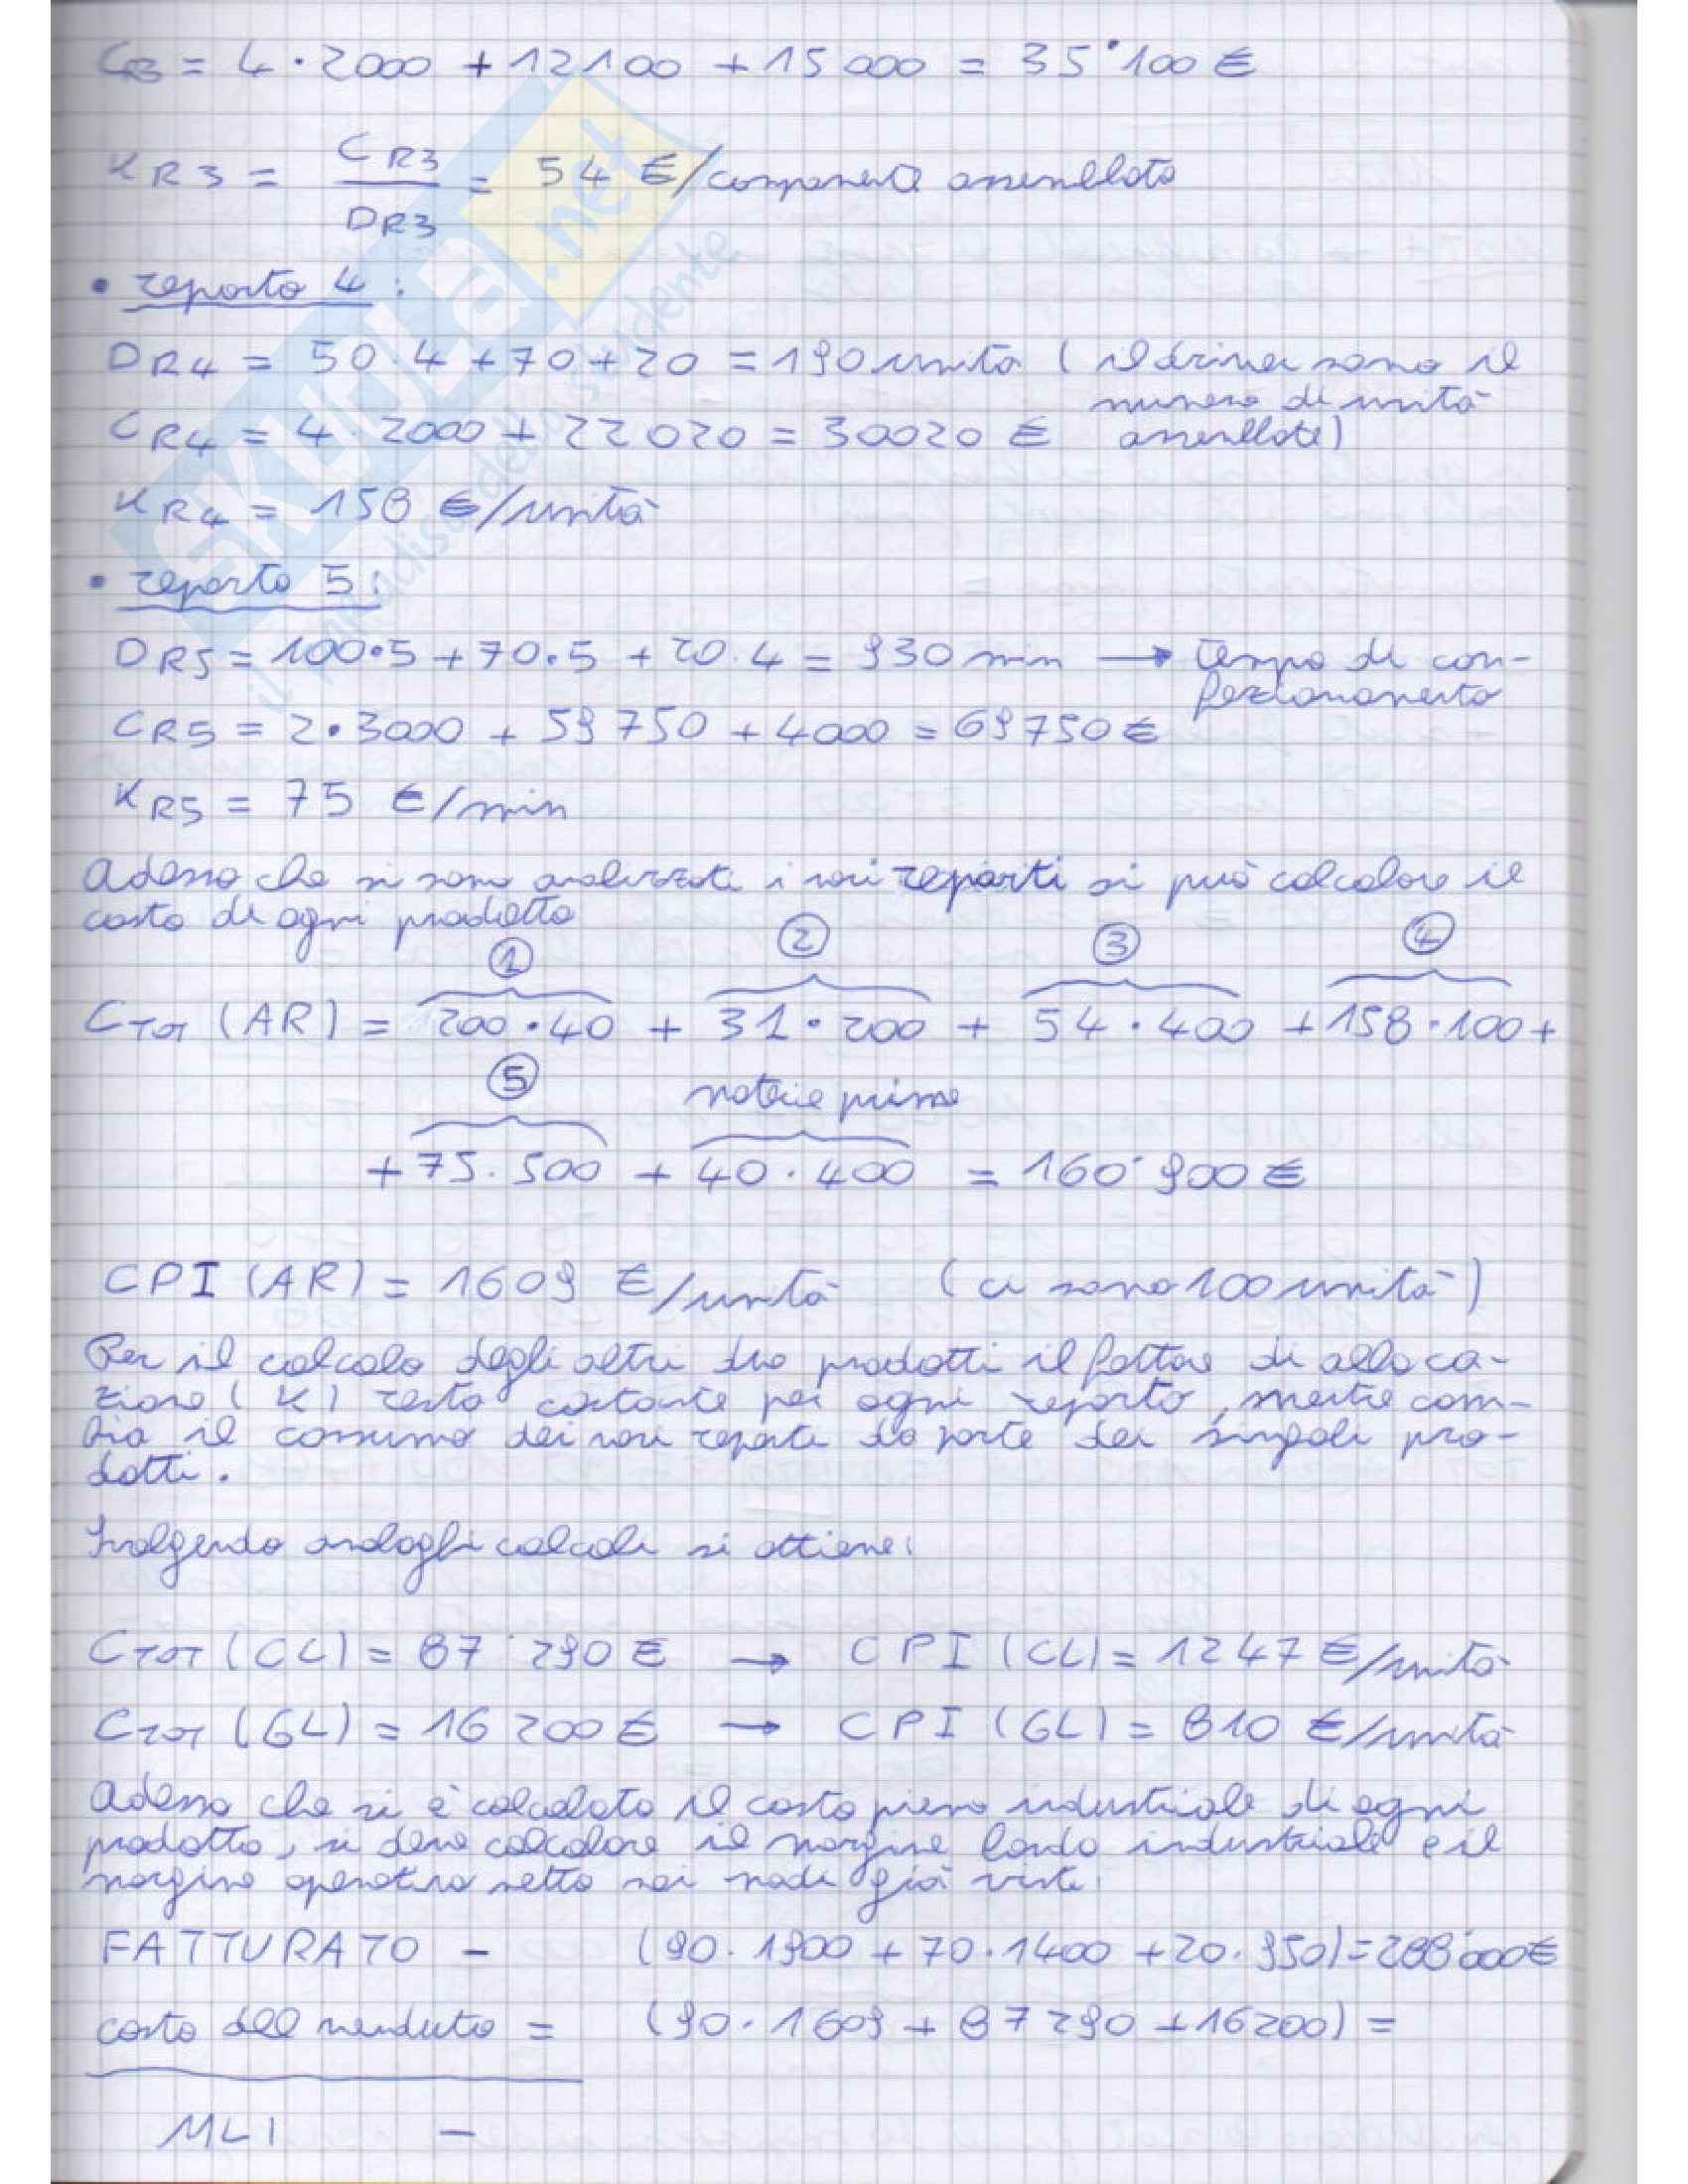 C_R3 = 4·2000 + 12100 + 15000 = 35˙100 €
K_R3 = C_R3 / D_R3 = 54 €/componente assemblato
• reparto 4:
D_R4 = 50·4 + 70 + 20 = 190 unità (il driver sono il
numero di unità
C_R4 = 4·2000 + 22020 = 30020 € assemblate)
K_R4 = 158 €/unità
• reparto 5:
D_R5 = 100·5 + 70·5 + 20·4 = 930 min → tempo di con-
fezionamento
C_R5 = 2·3000 + 59750 + 4000 = 69750 €
K_R5 = 75 €/min
Adesso che si sono analizzati i vari reparti si può calcolare il
costo di ogni prodotto
① ② ③ ④
C_TOT (AR) = 200·40 + 31·200 + 54·400 + 158·100 +
⑤ materie prime
+ 75·500 + 40·400 = 160˙900 €
CPI (AR) = 1609 €/unità (ci sono 100 unità)
Per il calcolo degli altri due prodotti il fattore di alloca-
zione (K) resta costante per ogni reparto, mentre cam-
bia il consumo dei vari reparti da parte dei singoli pro-
dotti.
Svolgendo analoghi calcoli si ottiene:
C_TOT (CL) = 87˙290 € → CPI (CL) = 1247 €/unità
C_TOT (GL) = 16 200 € → CPI (GL) = 810 €/unità
Adesso che si è calcolato il costo pieno industriale di ogni
prodotto, si deve calcolare il margine lordo industriale e il
margine operativo netto nei modi già visti:
FATTURATO – (90·1900 + 70·1400 + 20·950) = 288˙000 €
costo del venduto = (90·1609 + 87290 + 16200) =
MLI –
SKUOLA.net
il paradiso dello studente